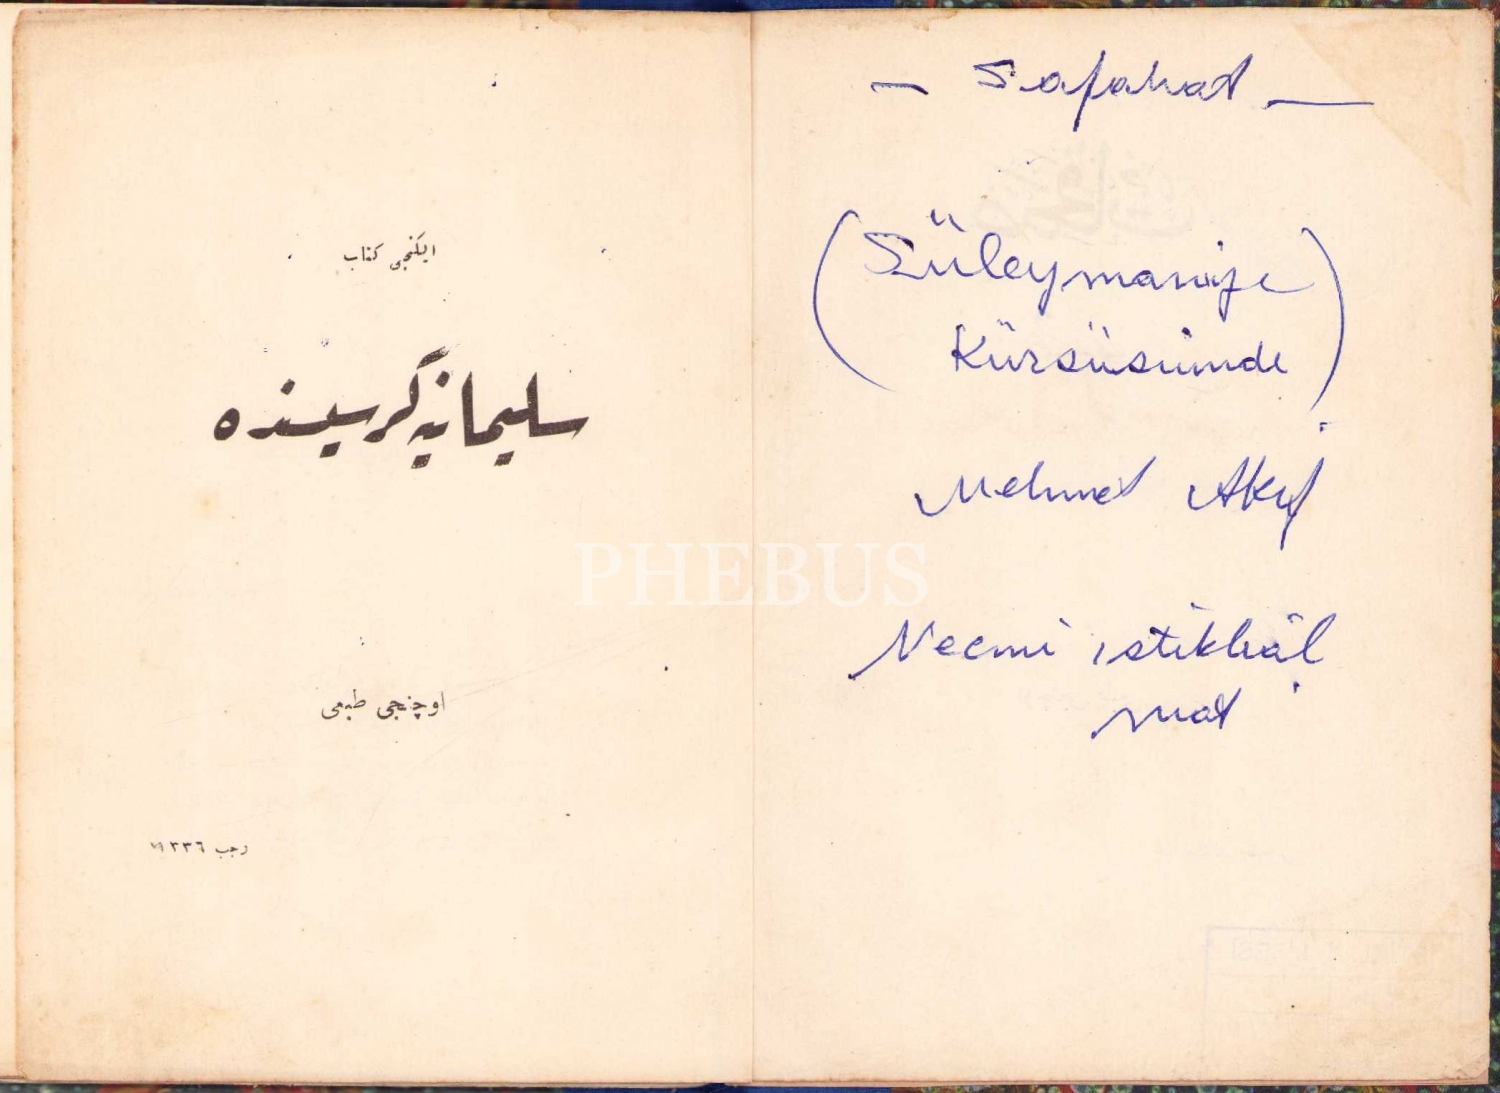 ایکنجی کتاب
سلیمانیه کرسیسنده
اوچنجی طبعی
رجب ١٣٣٦
— Safahat —
(Süleymaniye
Kürsüsünde)
Mehmet Akif
Necmi istiklâl
mat
PHEBUS